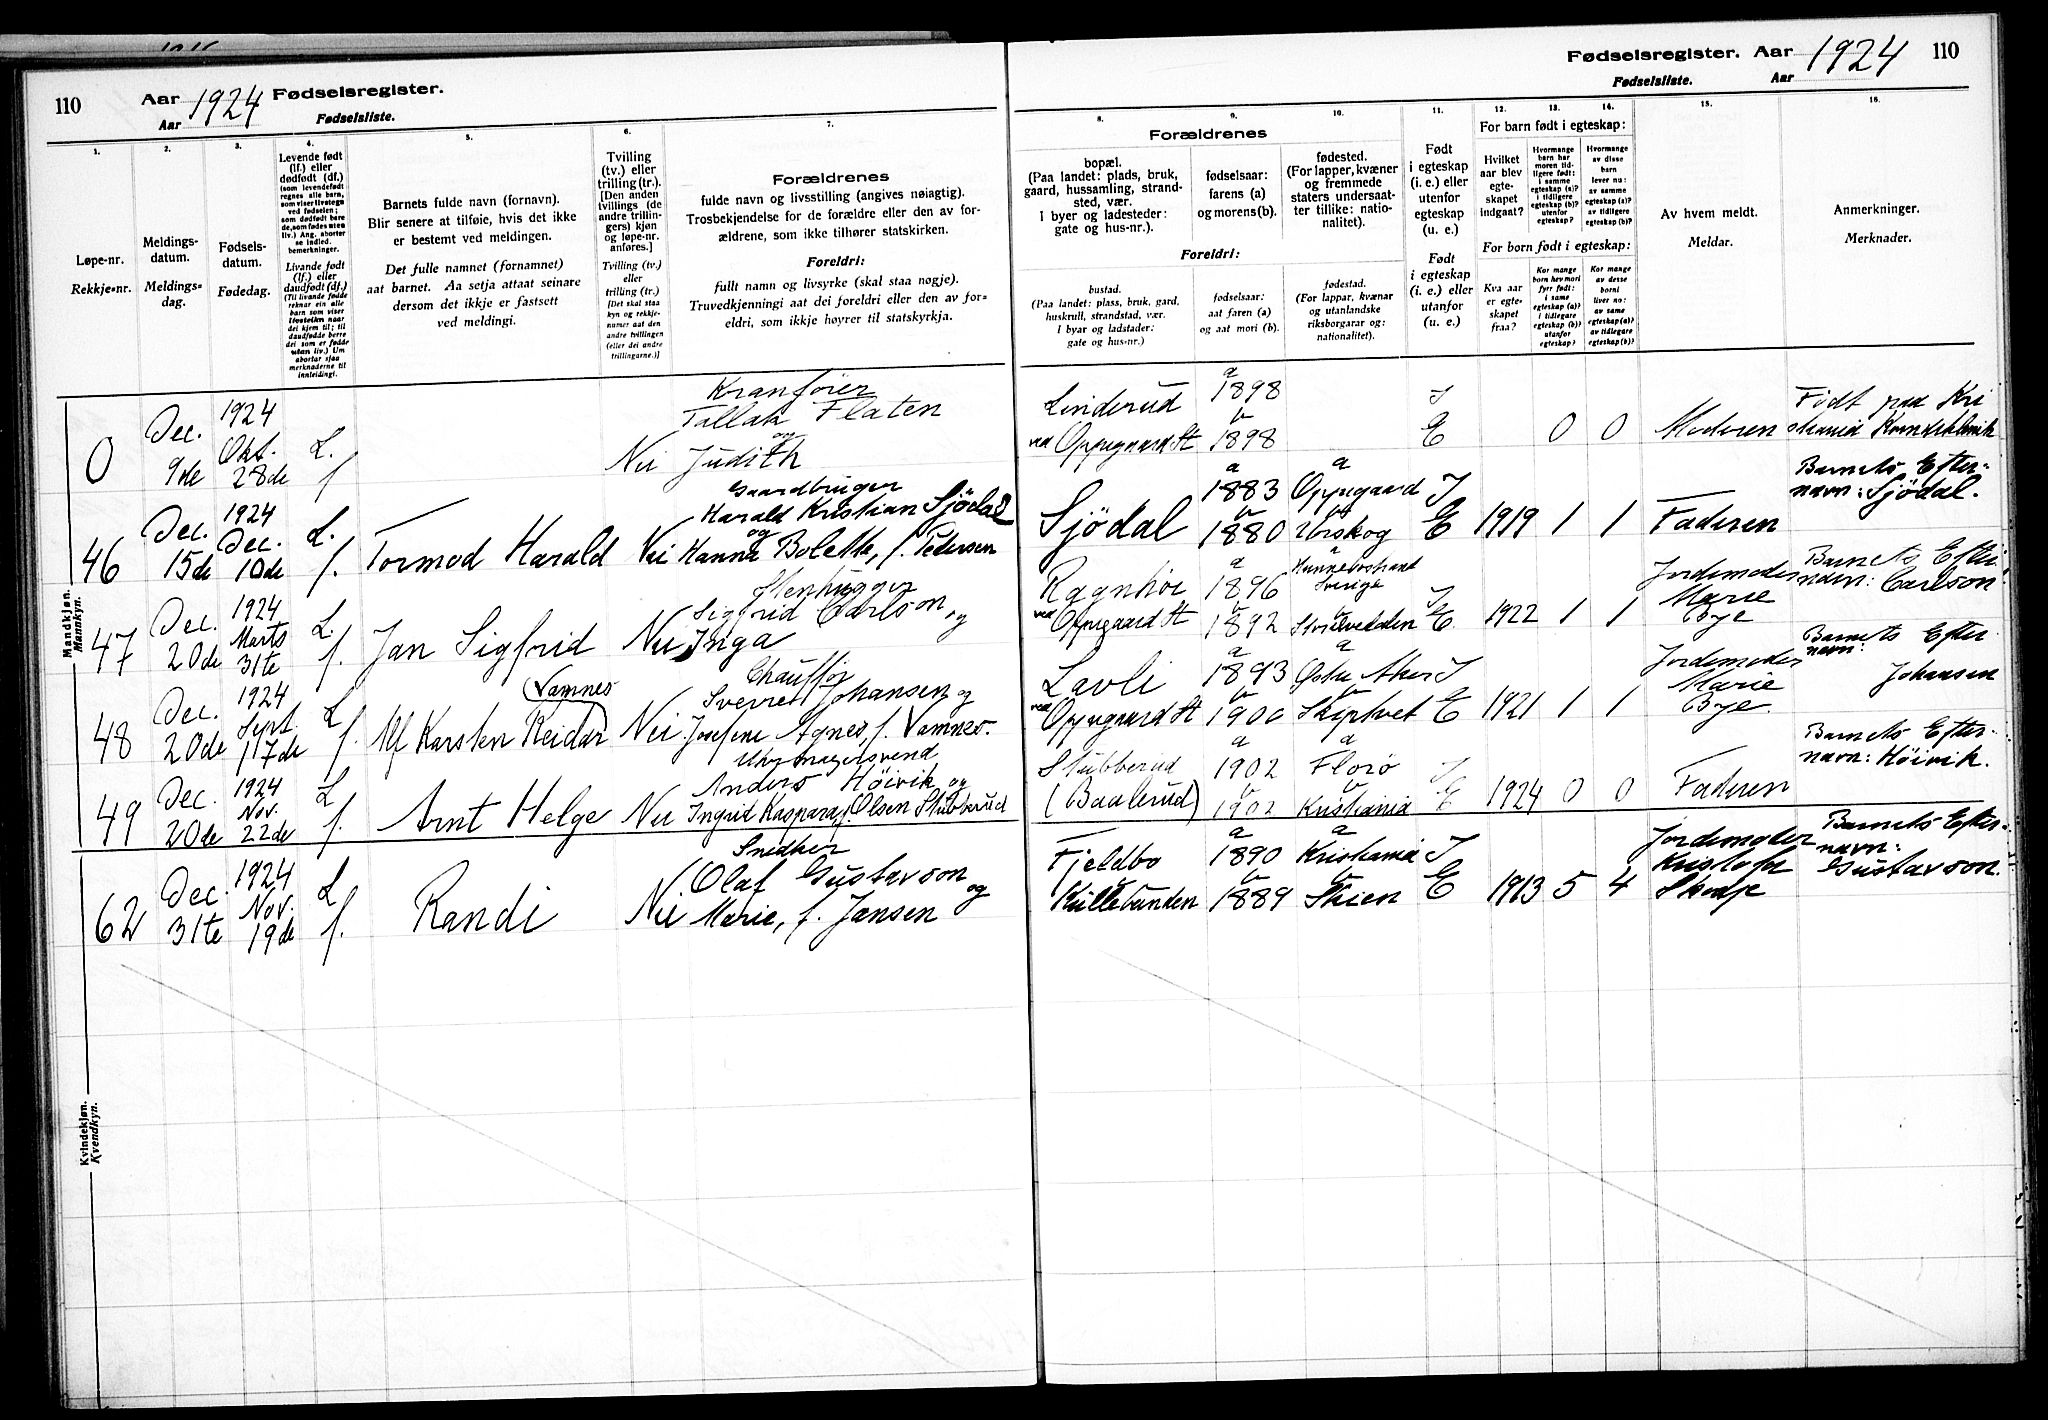 110
Aar 1924 Fødselsregister.
Aar Fødselsliste.
1.
Løpe-nr.
Rekkje-nr.
2.
Meldings-
datum.
Meldings-
dag.
3.
Fødsels-
datum.
Fødedag.
4.
Levende født
(lf.) eller
dødfødt (df.)
Livande født
(lf.) eller
daudfødt (df.)
5.
Barnets fulde navn (fornavn).
Blir senere at tilføie, hvis det ikke
er bestemt ved meldingen.
Det fulle namnet (fornamnet)
aat barnet. Aa setja attaat seinare
dersom det ikkje er fastsett
ved meldingi.
6.
Tvilling
(tv.) eller
trilling (tr.).
[Den anden
tvillings (de
andre trillin-
gers) kjøn
og løpe-nr.
anføres.]
Tvilling (tv.)
eller
trilling (tr.)
[Det skal staa
kyn og rekkje-
numer aat den
andre tvillingen
(eller dei andre
trillingarne.)]
7.
Forældrenes
fulde navn og livsstilling (angives nøiagtig).
Trosbekjendelse for de forældre eller den av for-
ældrene, som ikke tilhører statskirken.
Foreldri:
fullt namn og livsyrke (skal staa nøgje).
Truvedkjenningi aat dei foreldri eller den av for-
eldri, som ikkje høyrer til statskyrkja.
Fødselsregister. Aar 1924 110
Fødselsliste. Aar
Forældrenes
8.
bopæl.
(Paa landet: plads, bruk,
gaard, hussamling, strand-
sted, vær.
I byer og ladesteder:
gate og hus-nr.).
9.
fødselsaar:
farens (a)
og morens(b).
10.
fødested.
(For lapper, kvæner
og fremmede
staters undersaat-
ter tillike: natio-
nalitet).
Foreldri:
bustad.
(Paa landet: plass, bruk, gard,
huskrull, strandstad, vær.
I byar og ladstader:
gate og hus-nr.)
fødselsaar:
aat faren (a)
og aat mori (b).
fødestad.
(For lappar, kvænar
og utanlandske
riksborgarar og:
nationalitet).
11.
Født
i egteskap
(i. e.) eller
utenfor
egteskap
(u. e.)
Født
i egteskap
(i. e.) eller
utanfor
(u. e.)
12. 13. 14.
For barn født i egteskap:
Hvilket
aar blev
egte-
skapet
indgaat?
Hvormange
barn har
moren tid-
ligere født:
i samme
egteskap (a)?
i tidligere
egteskap (b)?
utenfor
egteskap?
Hvormange
av disse
barn
lever nu:
av samme
egteskap (a)?
av tidligere
egteskap (b)?
For born født i egteskap:
Kva aar
er egte-
skapet
fraa?
15.
Av hvem meldt.
Meldar.
16.
Anmerkninger.
Merknader.
Mandkjøn.
Mannkyn.
0 Dec. 9de 1924 Okt. 28de L. f. Nei Kranfører Tallak Flaten og Judith Linderud ved Oppegaard St a 1898 b 1898 I E 0 0 Moderen Født paa Kristiania Kvindeklinik
46 Dec. 15de 1924 Dec. 10de L. f. Tormod Harald Nei Gaardbruger Harald Kristian Sjödal og Hanna Bolette, f. Pedersen Sjödal a 1883 b 1880 a Oppegaard b Urskog I E 1919 1 1 Faderen Barnets Efternavn: Sjödal.
47 Dec. 20de 1924 Marts 31te L. f. Jan Sigfrid Nei Stenhugger Sigfrid Carlson, og Inga Ragnhöi ved Oppegaard St a 1896 b 1892 a Sverige I E. 1922 1 1 Jordemoder Marie Bye Carlson.
48 Dec. 20de 1924 Sept. 17de L f. Alf Karsten Reidar Vamnes Nei Chauffør Sverre Johansen og Josefine Agnes, f. Vamnes. Lavli ved Oppegaard St a 1893 b 1900 a Østre Aker b Skiptvet I E 1921 1 1 Jordemoder Marie Bye. Barnets Efternavn: Johansen
49 Dec. 20de 1924 Nov. 22de L f. Arnt Helge Nei Uhrmagersvend Anders Höivik og Ingrid Kaspara, f. Olsen Stubberud Stubberud (Baalerud) a 1902 b 1902 a Florø b Kristiania I E 1924 0 0 Faderen Barnets Efternavn: Höivik.
62 Dec. 31te 1924 Nov. 19de L f. Randi Nei Snedker Olaf Gustavson og Marie, f. Jansen Fjeldbo Kullebunden a 1890 b 1889 a Kristiania b Skien I E 1913 5 4 Jordemoder Barnets Efternavn: Gustavson.
Kvindekjøn.
Kvendkyn.